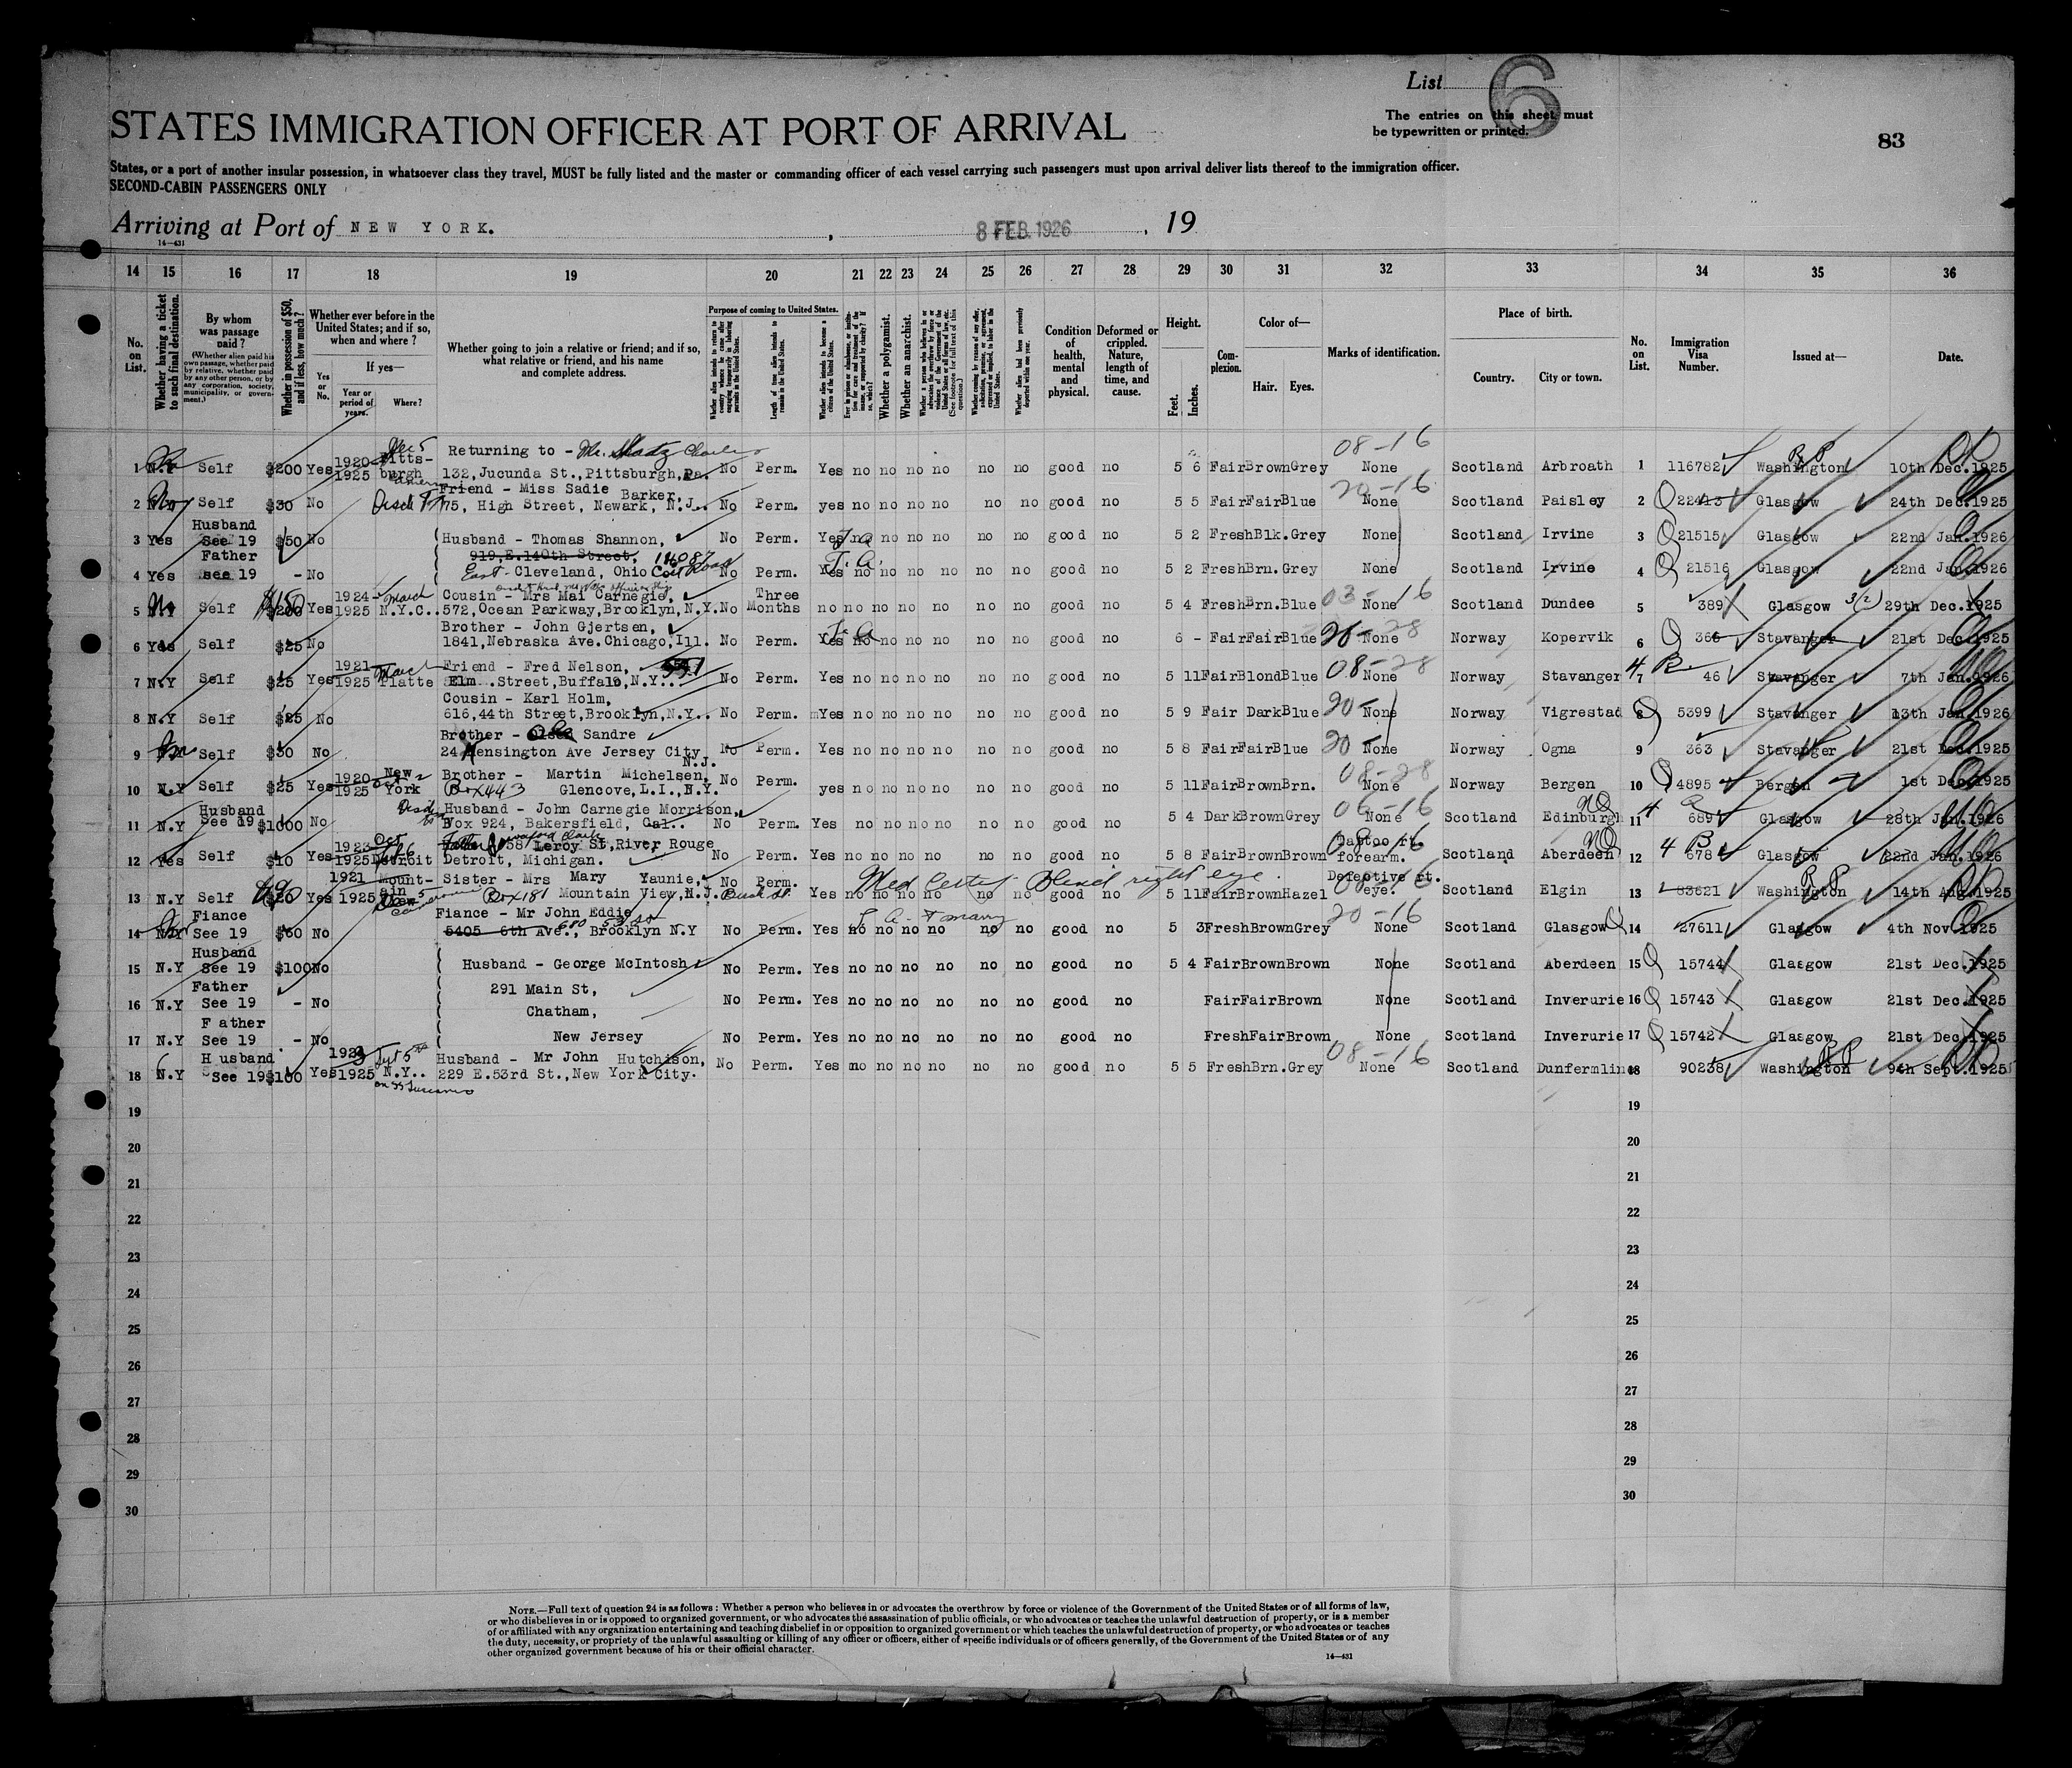 List 6
The entries on this sheet must
be typewritten or printed.
83
STATES IMMIGRATION OFFICER AT PORT OF ARRIVAL
States, or a port of another insular possession, in whatsoever class they travel, MUST be fully listed and the master or commanding officer of each vessel carrying such passengers must upon arrival deliver lists thereof to the immigration officer.
SECOND-CABIN PASSENGERS ONLY
Arriving at Port of NEW YORK. , 8 FEB. 1926 , 19
14—431
14 15 16 17 18 19 20 21 22 23 24 25 26 27 28 29 30 31 32 33 34 35 36
No. on List.
Whether having a ticket to such final destination.
By whom was passage paid?
(Whether alien paid his own passage, whether paid by relative, whether paid by any other person, or by any corporation, society, municipality, or government.)
Whether in possession of $50, and if less, how much?
Whether ever before in the United States; and if so, when and where?
If yes—
Yes or No.
Year or period of years.
Where?
Whether going to join a relative or friend; and if so, what relative or friend, and his name and complete address.
Purpose of coming to United States.
Length of time alien intends to remain in the United States.
Whether alien intends to become a citizen of the United States.
Whether a polygamist.
Whether an anarchist.
Condition of health, mental and physical.
Deformed or crippled. Nature, length of time, and cause.
Height.
Feet. Inches.
Complexion.
Color of—
Hair. Eyes.
Marks of identification.
Place of birth.
Country. City or town.
No. on List.
Immigration Visa Number.
Issued at—
Date.
1 N.Y Self $200 Yes 1920 1925 Pittsburgh Returning to - Mr. Charles 132, Jucunda St., Pittsburgh, Pa. No Perm. Yes no no no no no no good no 5 6 Fair Brown Grey 08-16 None Scotland Arbroath 1 116782 Washington 10th Dec. 1925
2 Self $30 No Friend - Miss Sadie Barker, 75, High Street, Newark, N.J.. No Perm. yes no no no no no no good no 5 5 Fair Fair Blue 20-16 None Scotland Paisley 2 22413 Glasgow 24th Dec. 1925
3 Yes Husband See 19 $50 No Husband - Thomas Shannon, 919, E. 140th Street, 14087 No Perm. Yes no no no no no no good no 5 2 Fresh Blk. Grey None Scotland Irvine 3 21515 Glasgow 22nd Jan. 1926
4 Yes Father see 19 - No East Cleveland, Ohio Coit Road No Perm. Yes no no no no no no good no 5 2 Fresh Brn. Grey None Scotland Irvine 4 21516 Glasgow 22nd Jan. 1926
5 No Self $150 $200 Yes 1924 1925 N.Y.C.. Cousin - Mrs Mai Carnegie, 572, Ocean Parkway, Brooklyn, N.Y. No Three Months no no no no no no no good no 5 4 Fresh Brn. Blue 03-16 None Scotland Dundee 5 389 Glasgow 3(2) 29th Dec. 1925
6 Yes Self $25 No Brother - John Gjertsen, 1841, Nebraska Ave. Chicago, Ill. No Perm. Yes no no no no no no good no 6 - Fair Fair Blue None Norway Kopervik 6 366 Stavanger 21st Dec. 1925
7 N.Y Self $25 Yes 1921 1925 Platte Friend - Fred Nelson, 551 Elm .Street, Buffalo, N.Y... No Perm. Yes no no no no no no good no 5 11 Fair Blond Blue 08-28 None Norway Stavanger 7 46 Stavanger 7th Jan. 1926
8 N.Y Self $25 No Cousin - Karl Holm, 616, 44th Street, Brooklyn, N.Y.. No Perm. Yes no no no no no no good no 5 9 Fair Dark Blue 20- None Norway Vigrestad 8 5399 Stavanger 13th Jan. 1926
9 Self $30 No Brother - Sandre 24 Kensington Ave Jersey City N.J. No Perm. Yes no no no no no no good no 5 8 Fair Fair Blue 20- None Norway Ogna 9 363 Stavanger 21st Dec. 1925
10 N.Y Self $25 Yes 1920 1925 New York Brother - Martin Michelsen, Box 443 Glencove, L.I., N.Y. No Perm. yes no no no no no no good no 5 11 Fair Brown Brn. 08-28 None Norway Bergen 10 4895 Bergen 1st Dec. 1925
11 N.Y Husband See 19 $1000 No Husband - John Carnegie Morrison, Box 924, Bakersfield, Cal.. No Perm. Yes no no no no no no good no 5 4 Dark Brown Grey 06-16 None Scotland Edinburgh 11 689 Glasgow 28th Jan. 1926
12 Yes Self $10 Yes 1923 1925 Detroit 58 Leroy St, River Rouge Detroit, Michigan. No Perm. Yes no no no no no no good no 5 8 Fair Brown Brown Tattoo rt. forearm. Scotland Aberdeen 12 4 678 Glasgow 22nd Jan. 1926
13 N.Y Self $20 Yes 1921 1925 Mountain View Sister - Mrs Mary Yaunie, Box 181 Mountain View, N.J. No Perm. Yes no no no no no no good no Blind right eye. 5 11 Fair Brown Hazel Defective rt. eye. Scotland Elgin 13 83621 Washington 14th Aug. 1925
14 N.Y Fiance See 19 $60 No Fiance - Mr John Eddie 5405 6th Ave., Brooklyn N.Y No Perm. Yes no no no no no no good no L A - to marry 5 3 Fresh Brown Grey 20-16 None Scotland Glasgow 14 27611 Glasgow 4th Nov. 1925
15 N.Y Husband See 19 $100 No Husband - George McIntosh No Perm. Yes no no no no no no good no 5 4 Fair Brown Brown None Scotland Aberdeen 15 15744 Glasgow 21st Dec. 1925
16 N.Y Father See 19 - No 291 Main St, Chatham, No Perm. Yes no no no no no no good no Fair Fair Brown None Scotland Inverurie 16 15743 Glasgow 21st Dec. 1925
17 N.Y Father See 19 - No New Jersey No Perm. Yes no no no no no no good no Fresh Fair Brown None Scotland Inverurie 17 15742 Glasgow 21st Dec. 1925
18 N.Y Husband See 19 $100 Yes 1923 1925 N.Y.. Husband - Mr John Hutchison, 229 E. 53rd St., New York City. No Perm. Yes no no no no no no good no 5 5 Fresh Brn. Grey 08-16 None Scotland Dunfermline 18 90238 Washington 9th Sept. 1925
19 19
20 20
21 21
22 22
23 23
24 24
25 25
26 26
27 27
28 28
29 29
30 30
NOTE.—Full text of question 24 is as follows: Whether a person who believes in or advocates the overthrow by force or violence of the Government of the United States or of all forms of law,
or who disbelieves in or is opposed to organized government, or who advocates the assassination of public officials, or who advocates or teaches the unlawful destruction of property, or is a member
of or affiliated with any organization entertaining and teaching disbelief in or opposition to organized government or which teaches the unlawful destruction of property, or who advocates or teaches
the duty, necessity, or propriety of the unlawful assaulting or killing of any officer or officers, either of specific individuals or of officers generally, of the Government of the United States or of any
other organized government because of his or their official character.
14—431